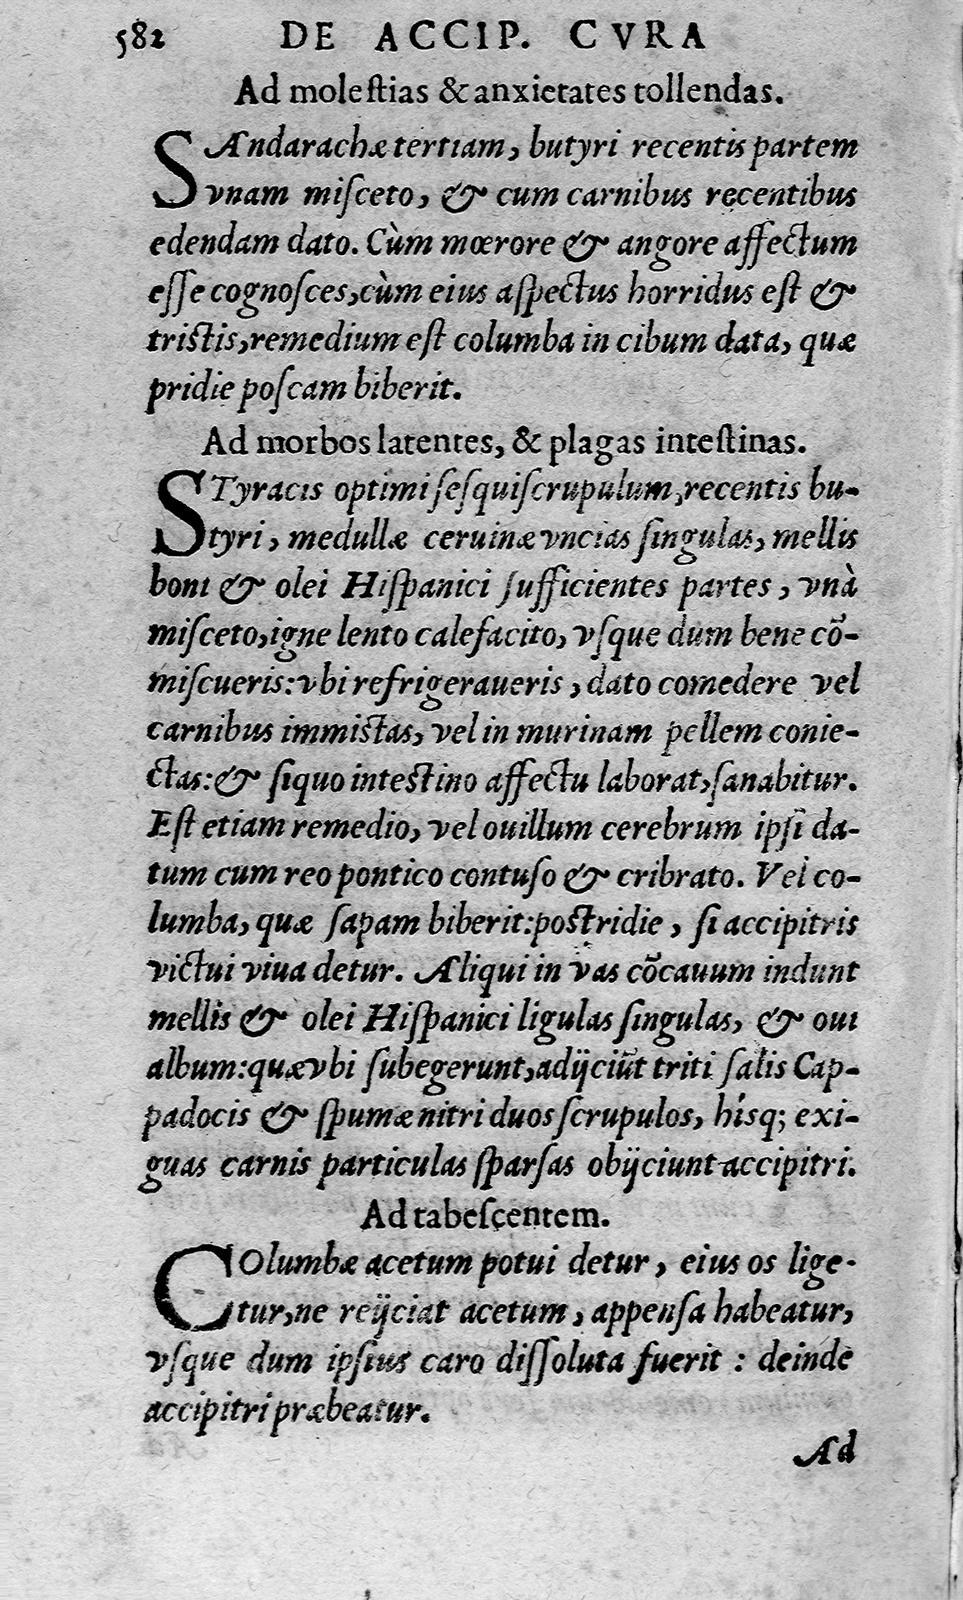 582 DE ACCIP. CVRA
Ad molestias & anxietates tollendas.
SAndarachæ tertiam, butyri recentis partem
vnam misceto, & cum carnibus recentibus
edendam dato. Cùm mœrore & angore affectum
esse cognosces, cùm eius aspectus horridus est &
tristis, remedium est columba in cibum data, quæ
pridie poscam biberit.
Ad morbos latentes, & plagas intestinas.
STyracis optimi sesquiscrupulum, recentis bu-
tyri, medullæ ceruinæ vncias singulas, mellis
boni & olei Hispanici sufficientes partes, vnà
misceto, igne lento calefacito, vsque dum bene cõ-
miscueris: vbi refrigeraueris, dato comedere vel
carnibus immistas, vel in murinam pellem conie-
ctas: & siquo intestino affectu laborat, sanabitur.
Est etiam remedio, vel ouillum cerebrum ipsi da-
tum cum reo pontico contuso & cribrato. Vel co-
lumba, quæ sapam biberit: postridie, si accipitris
victui viua detur. Aliqui in vas cõcauum indunt
mellis & olei Hispanici ligulas singulas, & oui
album: quæ vbi subegerunt, adijciũt triti salis Cap-
padocis & spumæ nitri duos scrupulos, hísq; exi-
guas carnis particulas sparsas obijciunt accipitri.
Ad tabescentem.
COlumbæ acetum potui detur, eius os lige-
tur, ne reijciat acetum, appensa habeatur,
vsque dum ipsius caro dissoluta fuerit : deinde
accipitri præbeatur.
Ad